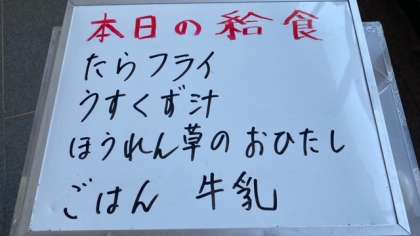 本日の給食
たらフライ
うすくず汁
ほうれん草のおひたし
ごはん 牛乳